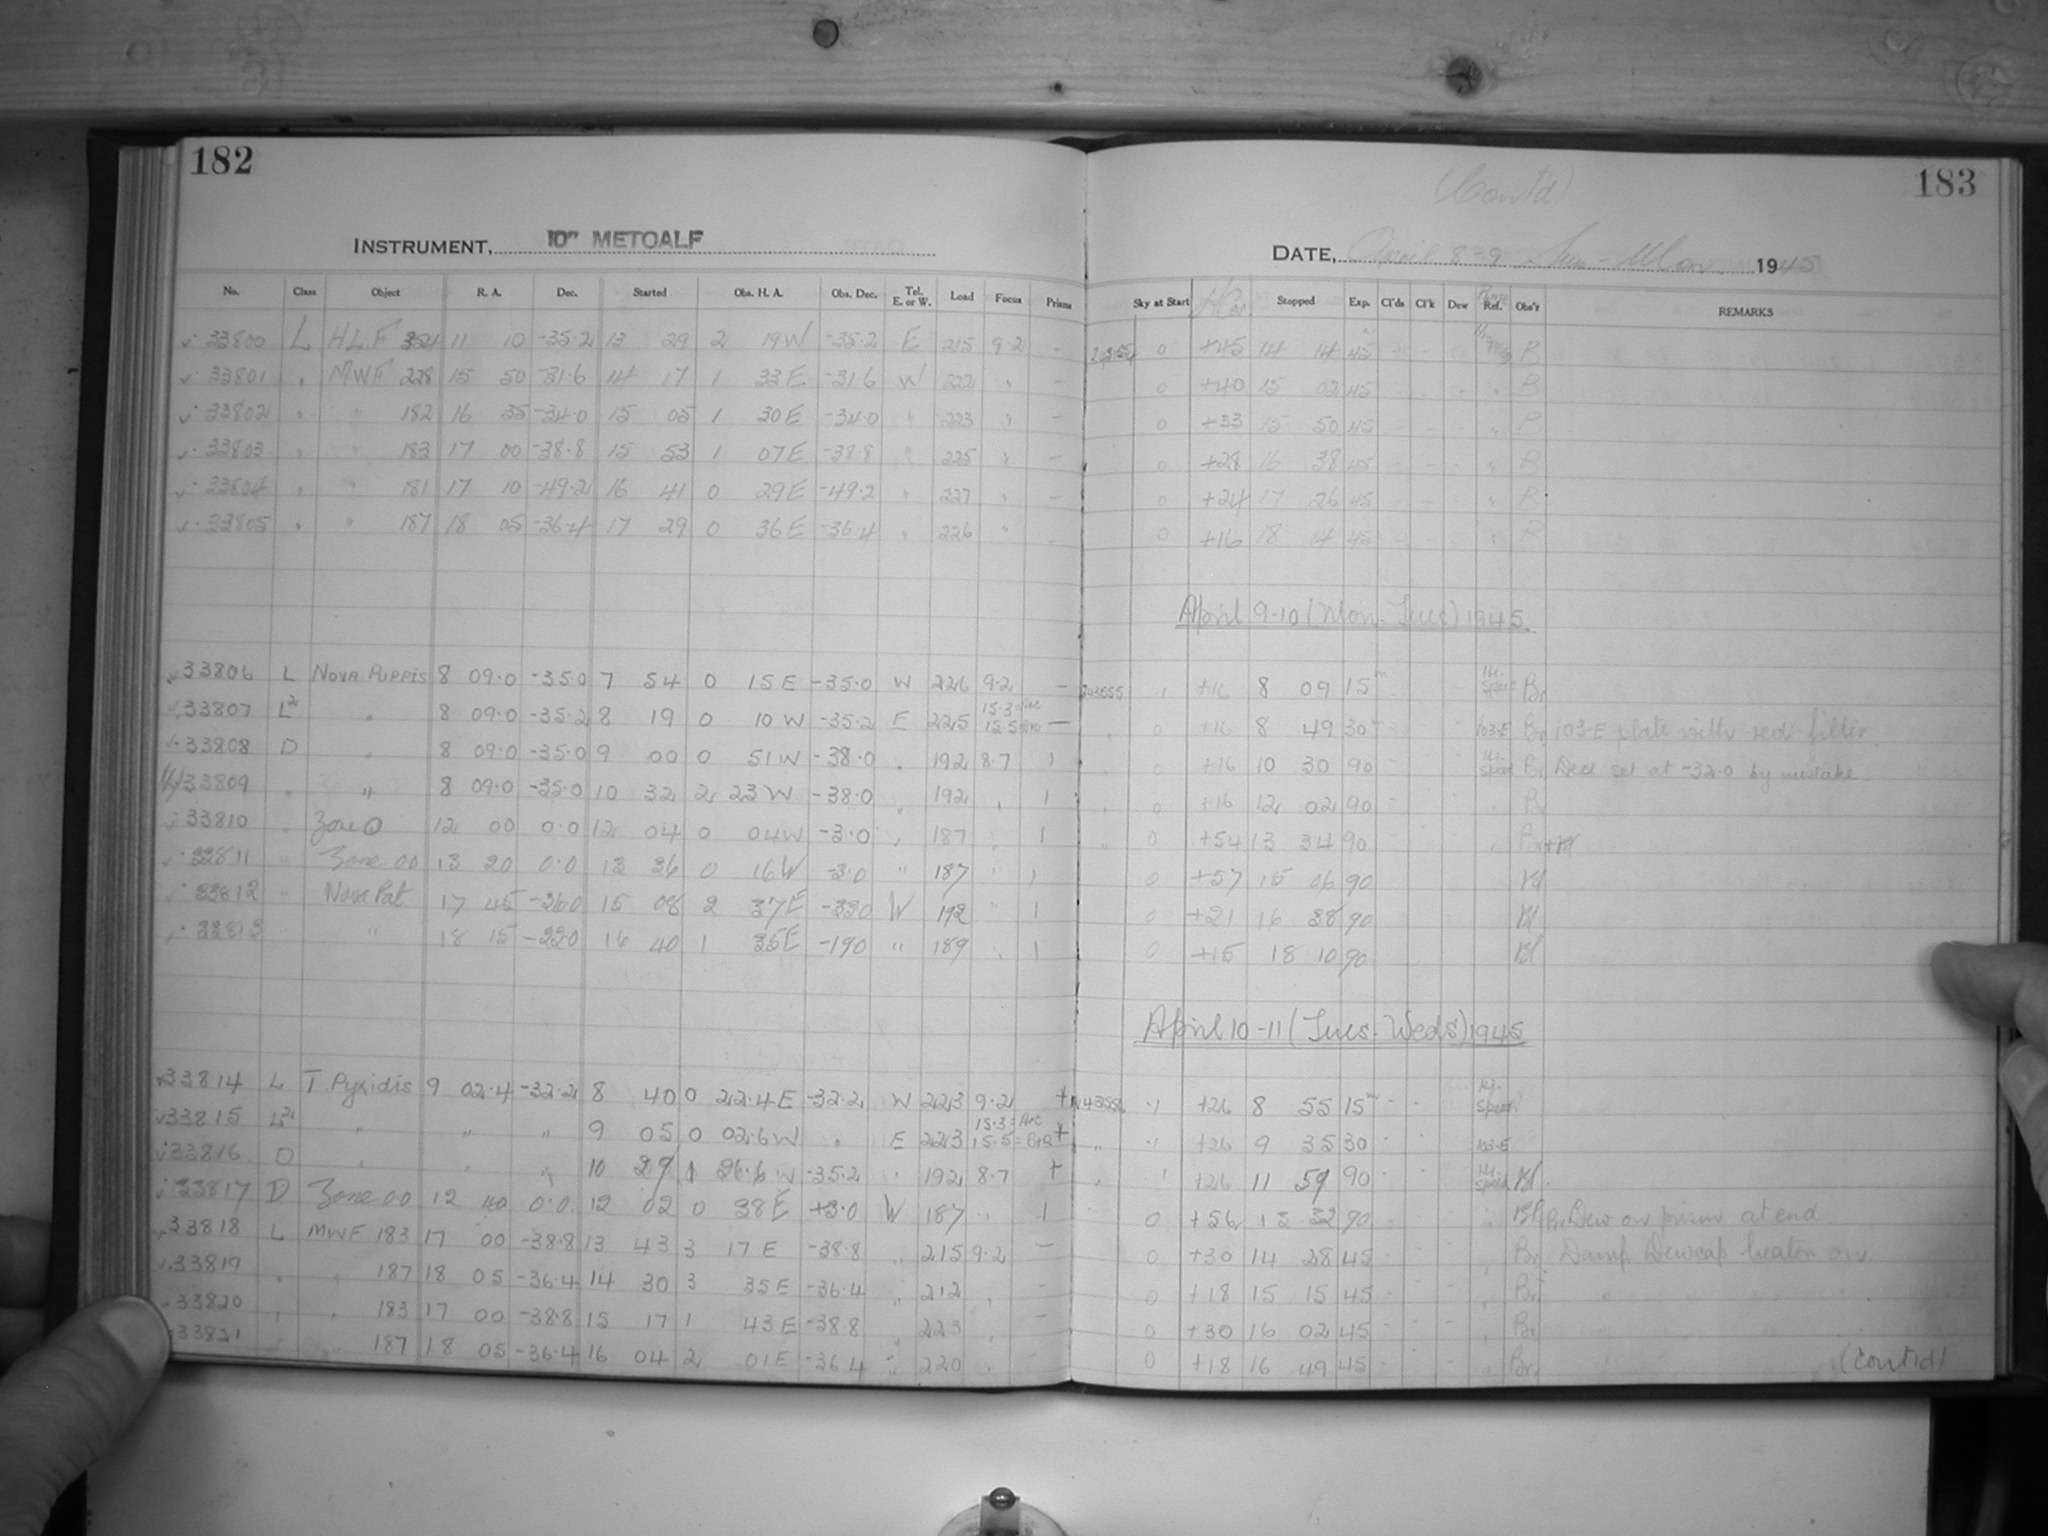 182
183
(Cont'd)
INSTRUMENT, 10" METCALF
DATE, April 8-9 Sun-Mon. 1945
No. Class Object R. A. Dec. Started Obs. H. A. Obs. Dec. Tel. E. or W. Load Focus Prisms Sky at Start Stopped Exp. Cl'ds Cl'k Dew Plate Ref. Obs'r REMARKS
33800 L HLF 354 11 10 -35.2 13 29 2 19W -35.2 E 215 9.2 - 0 +45 14 14 45 B
33801 " MWF 228 15 50 -31.6 14 17 1 33E -31.6 W 222 " - 0 +40 15 02 45 " B
33802 " " 182 16 35 -34.0 15 05 1 30E -34.0 " 223 " - 0 +33 15 50 45 " B
33803 " " 183 17 00 -38.8 15 53 1 07E -38.8 " 225 " - 0 +28 16 38 45 " B
33804 " " 181 17 10 -49.2 16 41 0 29E -49.2 " 227 " - 0 +24 17 26 45 " B
33805 " " 187 18 05 -36.4 17 29 0 36E -36.4 " 226 " - 0 +16 18 14 45 " B
April 9-10 (Mon-Tues) 1945.
33806 L Nova Puppis 8 09.0 -35.0 7 54 0 15E -35.0 W 226 9.2 - 1 +16 8 09 15m Br
33807 L2 " 8 09.0 -35.2 8 19 0 10W -35.2 E 225 15.3 15.5 - 0 +16 8 49 30 103-E Br 103-E plate with red filter.
33808 D " 8 09.0 -35.0 9 00 0 51W -38.0 " 192 8.7 1 0 +16 10 30 90 Br Decl set at -32.0 by mistake.
33809 " " 8 09.0 -35.0 10 32 2 23W -38.0 " 192 " 1 0 +16 12 02 90 Br
33810 " Zone 0 12 00 0.0 12 04 0 04W -3.0 " 187 " 1 0 +54 13 34 90 " Br+Bl
33811 " Zone 00 13 20 0.0 13 36 0 16W -3.0 " 187 " 1 0 +57 15 06 90 Bl
33812 " Nova Pat 17 45 -26.0 15 08 2 37E W 192 " 1 0 +21 16 38 90 Bl
33813 " " 18 15 -22.0 16 40 1 35E -19.0 " 189 " 1 0 +15 18 10 90 Bl
April 10-11 (Tues-Weds) 1945
33814 L T. Pyxidis 9 02.4 -32.2 8 40 0 22.4E -32.2 W 223 9.2 + .1 +26 8 55 15m
33815 L2 " " " 9 05 0 02.6W " E 223 15.3=Arc 15.5= + " .1 +26 9 35 30 103-E
33816 D " " " 10 29 1 26.6W -35.2 " 192 8.7 + " 1 +26 11 59 90 Bl.
33817 D Zone 00 12 40 0.0 12 02 0 38E +3.0 W 187 " 1 0 +56 13 32 90 Dew on prism at end.
33818 L MWF 183 17 00 -38.8 13 43 3 17E -38.8 " 215 9.2 - 0 +30 14 28 45 " Br Damp Dewcap heater on.
33819 " " 187 18 05 -36.4 14 30 3 35E -36.4 " 212 " - 0 +18 15 15 45 " Br " "
33820 " " 183 17 00 -38.8 15 17 1 43E -38.8 " 223 " - 0 +30 16 02 45 " Br
33821 " " 187 18 05 -36.4 16 04 2 01E -36.4 " 220 " - 0 +18 16 49 45 " Br (cont'd)